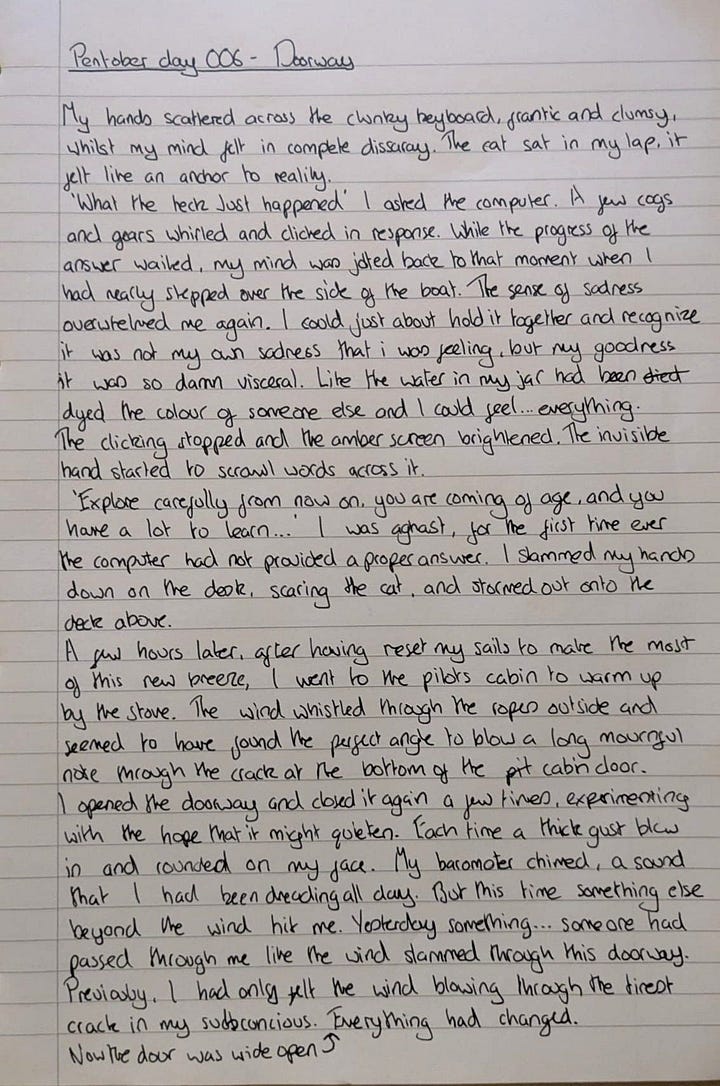 Pentober day 006 - Doorway
My hands scattered across the clunky keyboard, frantic and clumsy,
whilst my mind felt in complete dissaray. The cat sat in my lap, it
felt like an anchor to reality.
'What the heck just happened' I asked the computer. A few cogs
and gears whirled and clicked in response. While the progress of the
answer waited, my mind was jolted back to that moment when I
had nearly stepped over the side of the boat. The sense of sadness
overwhelmed me again. I could just about hold it together and recognize
it was not my own sadness that i was feeling, but my goodness
it was so damn visceral. Like the water in my jar had been died
dyed the colour of someone else and I could feel... everything.
The clicking stopped and the amber screen brightened. The invisible
hand started to scrawl words across it.
'Explore carefully from now on, you are coming of age, and you
have a lot to learn...' I was aghast, for the first time ever
the computer had not provided a proper answer. I slammed my hands
down on the desk, scaring the cat, and stormed out onto the
deck above.
A few hours later, after having reset my sails to make the most
of this new breeze, I went to the pilots cabin to warm up
by the stove. The wind whistled through the ropes outside and
seemed to have found the perfect angle to blow a long mournful
note through the crack at the bottom of the pit cabin door.
I opened the doorway and closed it again a few times, experimenting
with the hope that it might quieten. Each time a thick gust blew
in and rounded on my face. My baromoter chimed, a sound
that I had been dreading all day. But this time something else
beyond the wind hit me. Yesterday something... someone had
passed through me like the wind slammed through this doorway.
Previously, I had only felt the wind blowing through the tiniest
crack in my subconcious. Everything had changed.
Now the door was wide open